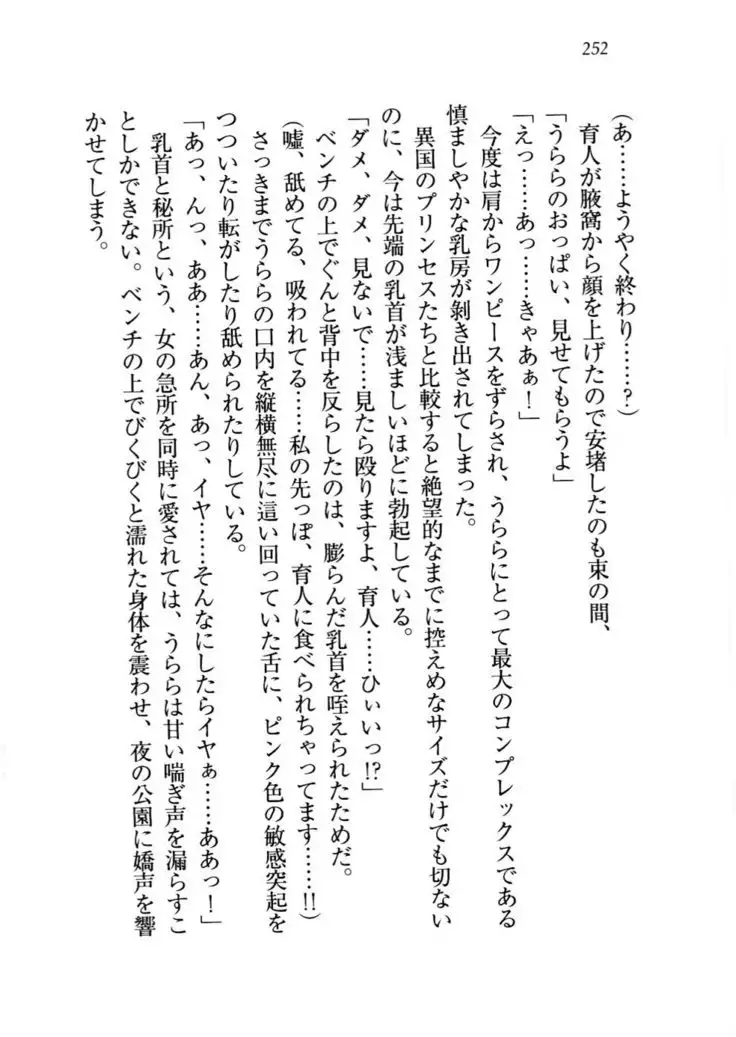 252
(あ……ようやく終わり……?)
育人が腋窩から顔を上げたので安堵したのも束の間、
「うららのおっぱい、見せてもらうよ」
「えっ……あっ……きゃあぁ!」
今度は肩からワンピースをずらされ、うららにとって最大のコンプレックスである
慎ましやかな乳房が剝き出されてしまった。
異国のプリンセスたちと比較すると絶望的なまでに控えめなサイズだけでも切ない
のに、今は先端の乳首が浅ましいほどに勃起している。
「ダメ、ダメ、見ないで……見たら殴りますよ、育人……ひぃいっ!?」
ベンチの上でぐんと背中を反らしたのは、膨らんだ乳首を咥えられたためだ。
(嘘、舐めてる、吸われてる……私の先っぽ、育人に食べられちゃってます……!!)
さっきまでうららの口内を縦横無尽に這い回っていた舌に、ピンク色の敏感突起を
つついたり転がしたり舐められたりしている。
「あっ、んっ、ああ……あん、あっ、イヤ……そんなにしたらイヤぁ……ああっ!」
乳首と秘所という、女の急所を同時に愛されては、うららは甘い喘ぎ声を漏らすこ
としかできない。ベンチの上でびくびくと濡れた身体を震わせ、夜の公園に嬌声を響
かせてしまう。